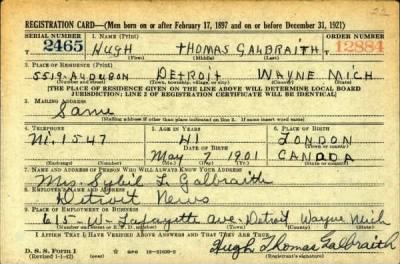 22
REGISTRATION CARD—(Men born on or after February 17, 1897 and on or before December 31, 1921)
SERIAL NUMBER 1. NAME (Print) ORDER NUMBER
2465 HUGH THOMAS GALBRAITH 12884
(First) (Middle) (Last)
2. PLACE OF RESIDENCE (Print)
5519-AUDUBON DETROIT WAYNE MICH
(Number and street) (Town, township, village, or city) (County) (State)
[THE PLACE OF RESIDENCE GIVEN ON THE LINE ABOVE WILL DETERMINE LOCAL BOARD
JURISDICTION; LINE 2 OF REGISTRATION CERTIFICATE WILL BE IDENTICAL]
3. MAILING ADDRESS
Same
[Mailing address if other than place indicated on line 2. If same insert word same]
4. TELEPHONE 5. AGE IN YEARS 6. PLACE OF BIRTH
41 LONDON
1547 DATE OF BIRTH (Town or county)
May 7 1901 CANADA
(Exchange) (Number) (Mo.) (Day) (Yr.) (State or country)
7. NAME AND ADDRESS OF PERSON WHO WILL ALWAYS KNOW YOUR ADDRESS
Mrs. Sybil L. Galbraith
8. EMPLOYER'S NAME AND ADDRESS
Detroit News
9. PLACE OF EMPLOYMENT OR BUSINESS
615-W-Lafayette ave-Detroit Wayne Mich
(Number and street or R. F. D. number) (Town) (County) (State)
I AFFIRM THAT I HAVE VERIFIED ABOVE ANSWERS AND THAT THEY ARE TRUE.
D. S. S. Form 1
(Revised 1-1-42) (over) Hugh Thomas Galbraith
(Registrant's signature)